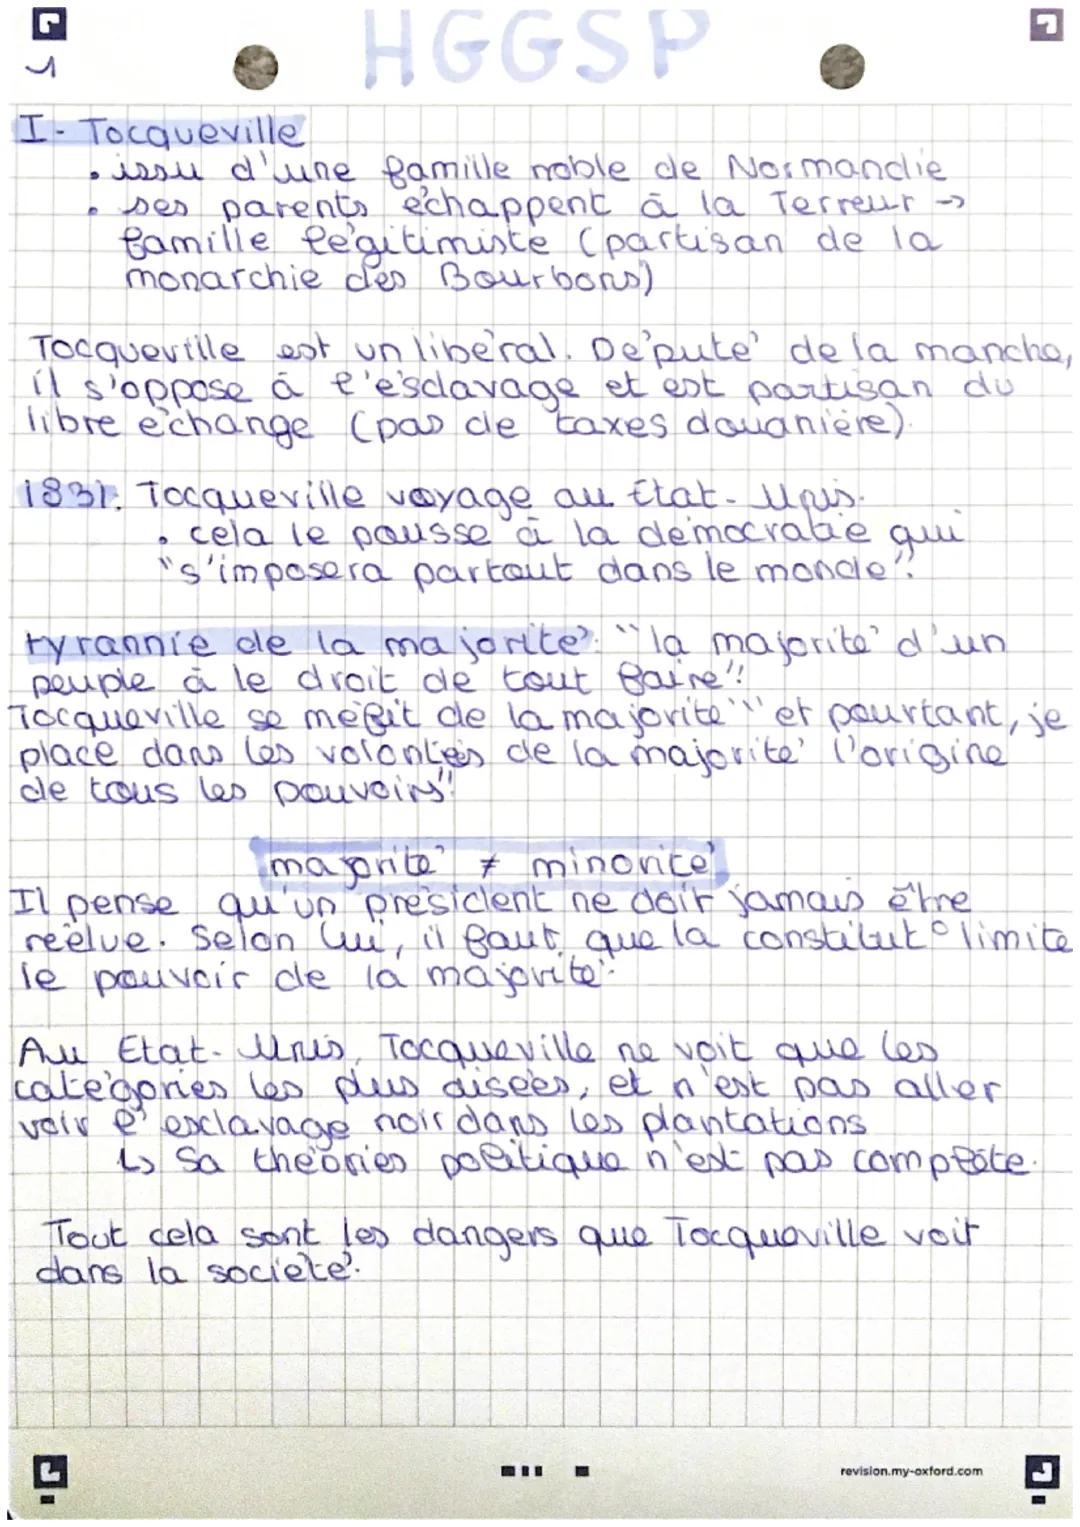 HGGSP
I- Tocqueville
• issu d'une famille noble de Normandie
• ses parents échappent à la Terreur ->
famille légitimiste (partisan de la
monarchie des Bourbons)
Tocqueville est un libéral. Député de la manche,
il s'oppose à l'esclavage et est partisan du
libre échange (pas de taxes douanière).
1831: Tocqueville voyage au État-Unis.
• cela le pousse à la démocratie qui
"s'imposera partout dans le monde".
tyrannie de la majorité: "la majorité d'un
peuple à le droit de tout faire".
Tocqueville se méfit de la majorité "et pourtant, je
place dans les volontés de la majorité l'origine
de tous les pouvoirs".
majorité ≠ minorité
Il pense qu'un président ne doit jamais être
réélue. Selon lui, il faut que la constitut° limite
le pouvoir de la majorité.
Au Etat-Unis, Tocqueville ne voit que les
catégories les plus aisées, et n'est pas aller
voir l'esclavage noir dans les plantations
↳ Sa théories politique n'est pas complète.
Tout cela sont les dangers que Tocqueville voit
dans la société.
revision.my-oxford.com